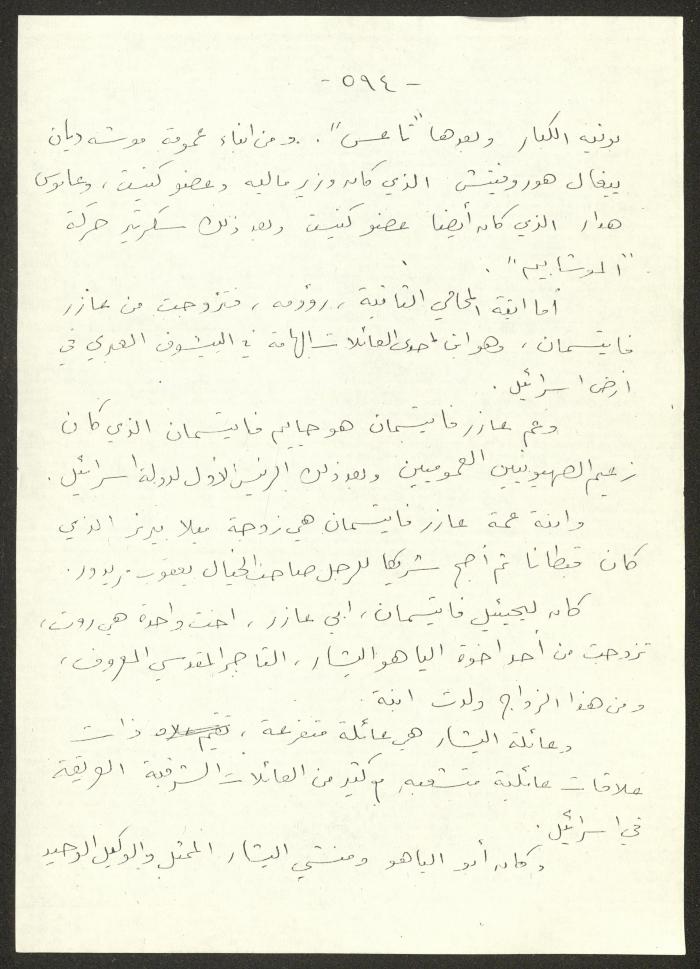 - ٥٩٤ -
يونيه الكبار وبعدها "تاعس". ومن ابناء عمومة موشه ديان
ييغال هوروفيتش الذي كان وزير مالية وعضو كنيست، وعاموس
هدار الذي كان أيضا عضو كنيست وبعد ذلك سكرتير حركة
"الموشابيم".
أما ابنة المحامي الثانية، رؤومه، فتزوجت من عازر
فايتسمان، وهو ابن لاحدى العائلات الهامة في اليشوف العبري في
ارض اسرائيل.
وعم عازر فايتسمان هو حاييم فايتسمان الذي كان
زعيم الصهيونيين العموميين وبعد ذلك الرئيس الأول لدولة اسرائيل.
وابنة عمة عازر فايتسمان هي زوجة ميلا برنر الذي
كان قبطانا ثم أصبح شريكا للرجل صاحب الخيال يعقوب مريدور.
كان ليحيئيل فايتسمان، ابي عازر، اخت واحدة هي روت،
تزوجت من أحد اخوة الياهو اليشار، التاجر المقدسي المعروف،
ومن هذا الزواج ولدت ابنة.
وعائلة اليشار هي عائلة متفرعة، ذات
علاقات عائلية متشعبه مع كثير من العائلات الشرقية العريقة
في اسرائيل.
وكان أبو الياهو ومنشي اليشار الممثل والوكيل الوحيد